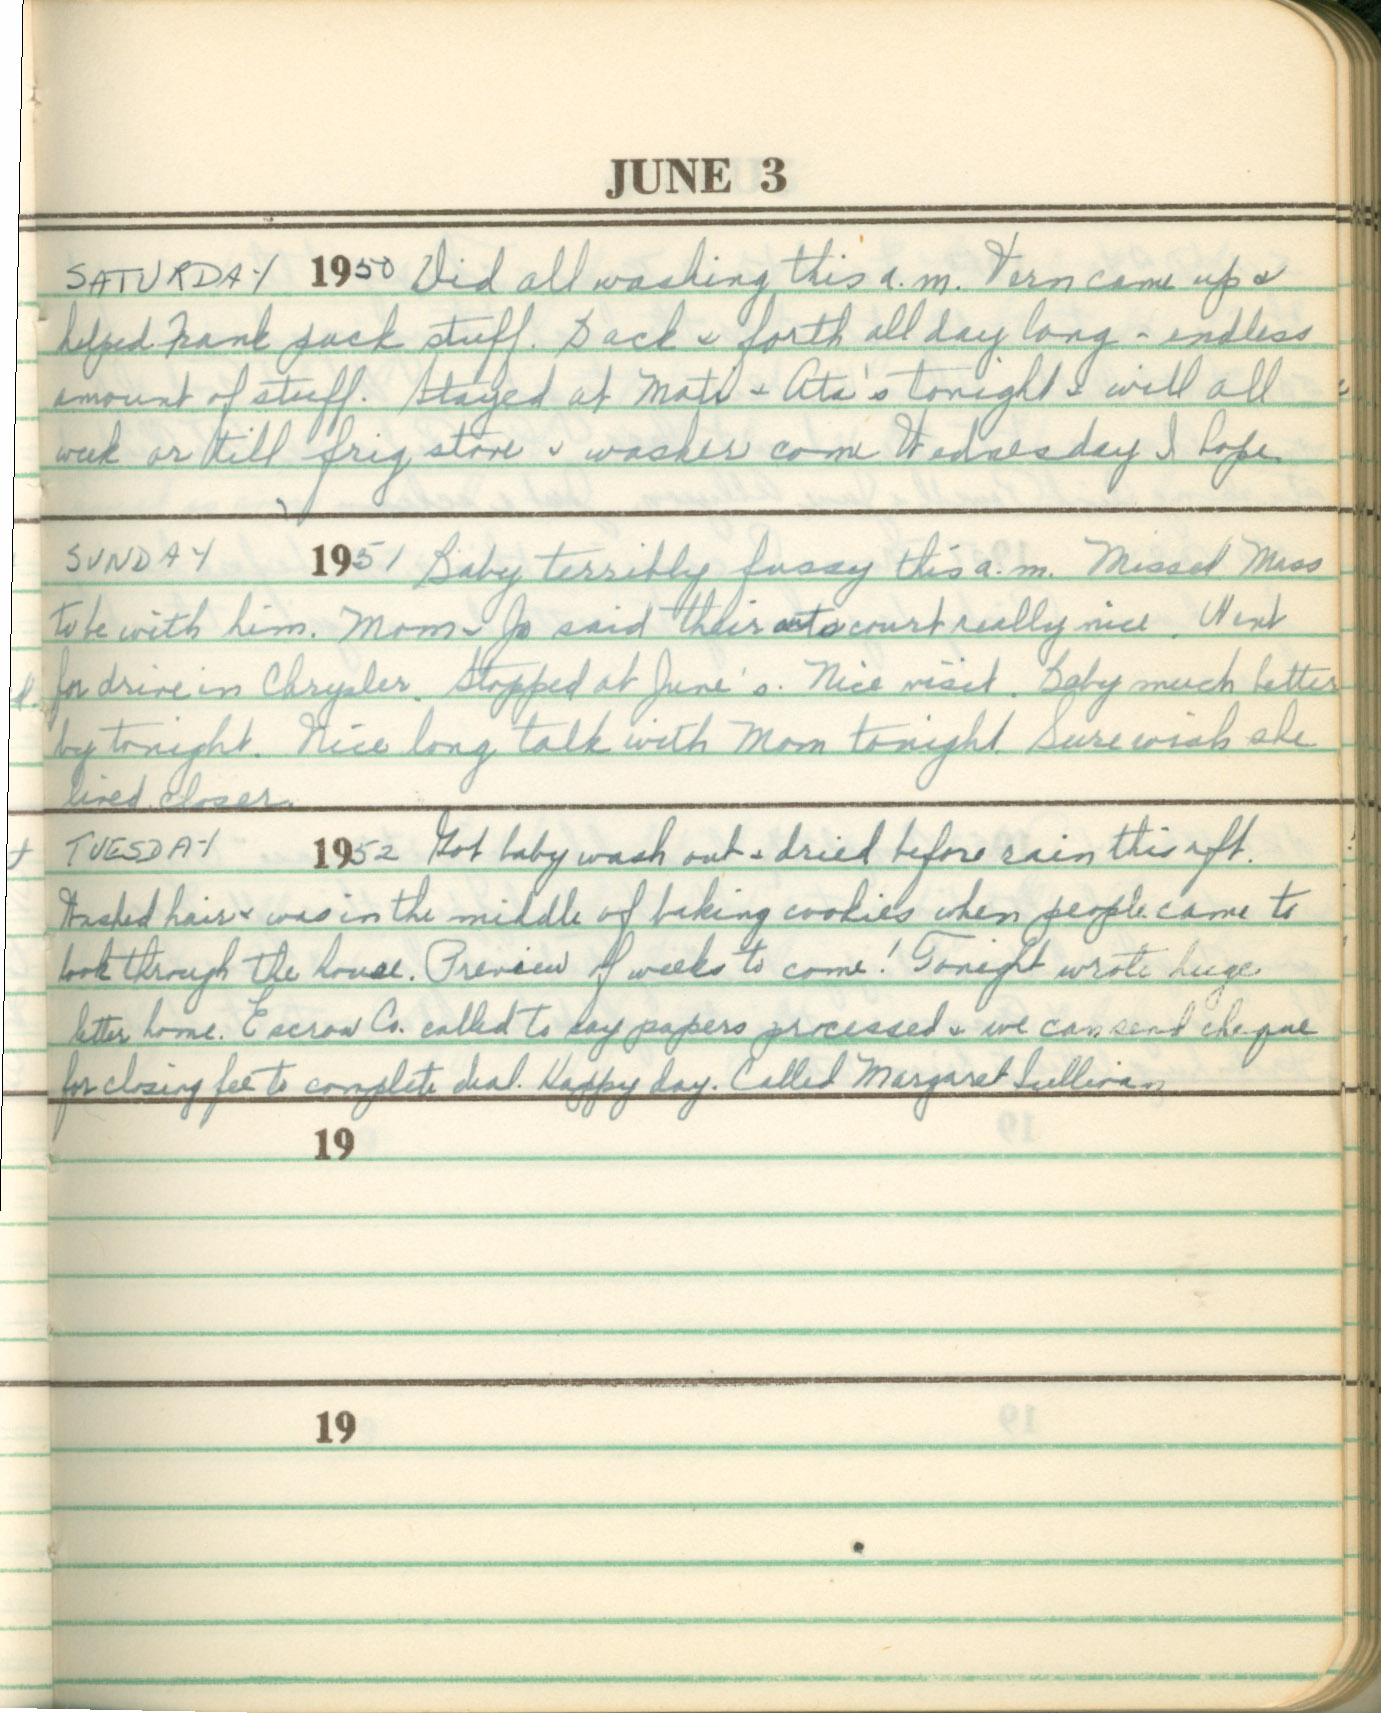 JUNE 3
SATURDAY 1950 Did all washing this a.m. Vern came up &
helped Frank pack stuff. Back & forth all day long - endless
amount of stuff. Stayed at Mati & Ata's tonight & will all
week or till frig stove & washer come Wednesday I hope.
SUNDAY 1951 Baby terribly fussy this a.m. Missed Mass
to be with him. Mom & Jo said their auto court really nice. Went
for drive in Chrysler. Stopped at June's. Nice visit. Baby much better
by tonight. Nice long talk with Mom tonight. Sure wish she
lived closer.
TUESDAY 1952 Got baby wash out & dried before rain this aft.
Washed hair & was in the middle of baking cookies when people came to
look through the house. Preview of weeks to come! Tonight wrote huge
letter home. Escrow Co. called to say papers processed & we can send cheque
for closing fee to complete deal. Happy day. Called Margaret Sullivan
19
19